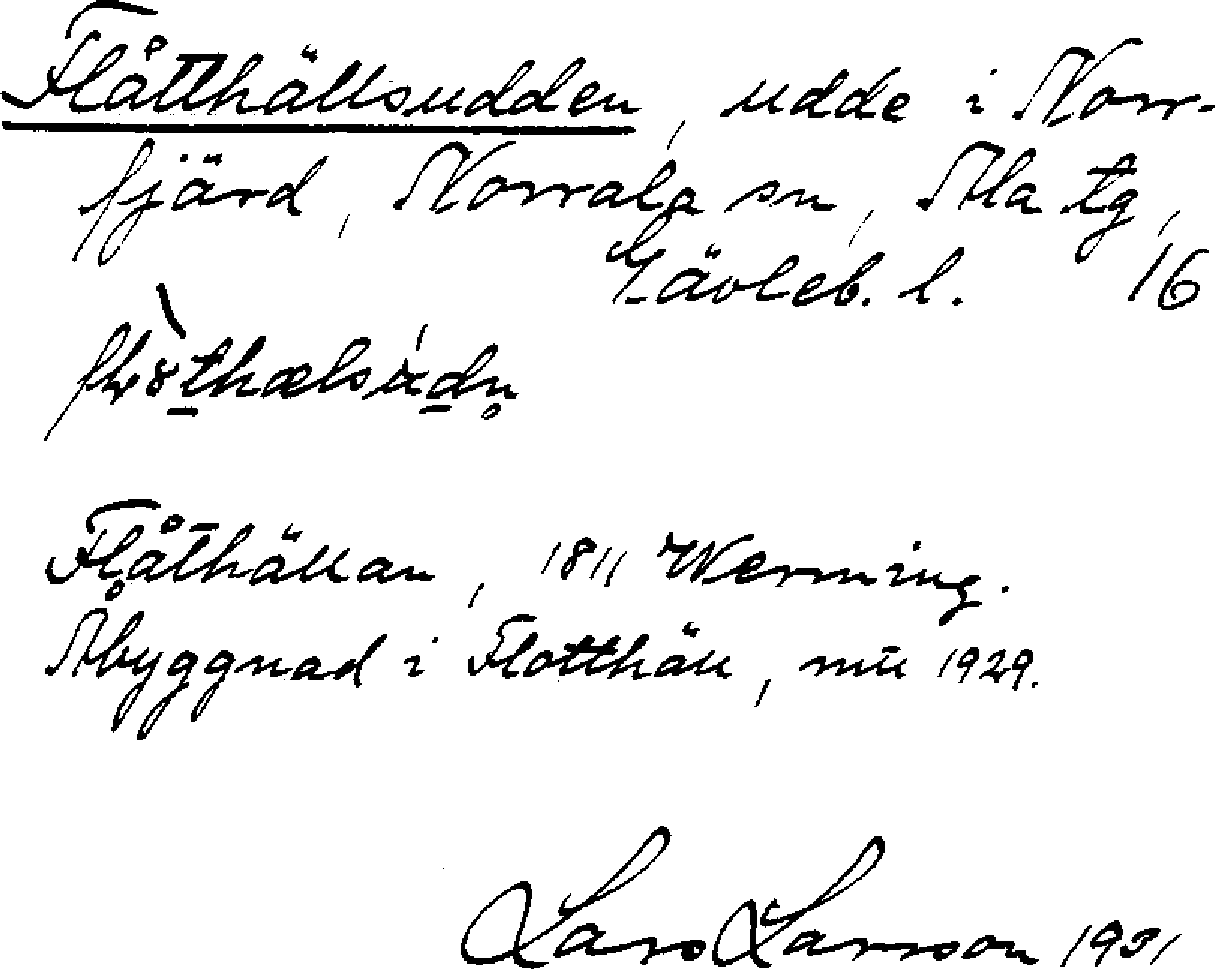 Flåtthällsudden, udde i Norr-
fjärd, Norrala sn, Ala tg,
Gävleb. l. 16
Flåthällan, 1811 Werming.
Åbyggnad i Flotthäll, mū 1929.
Lars Larsson 1931